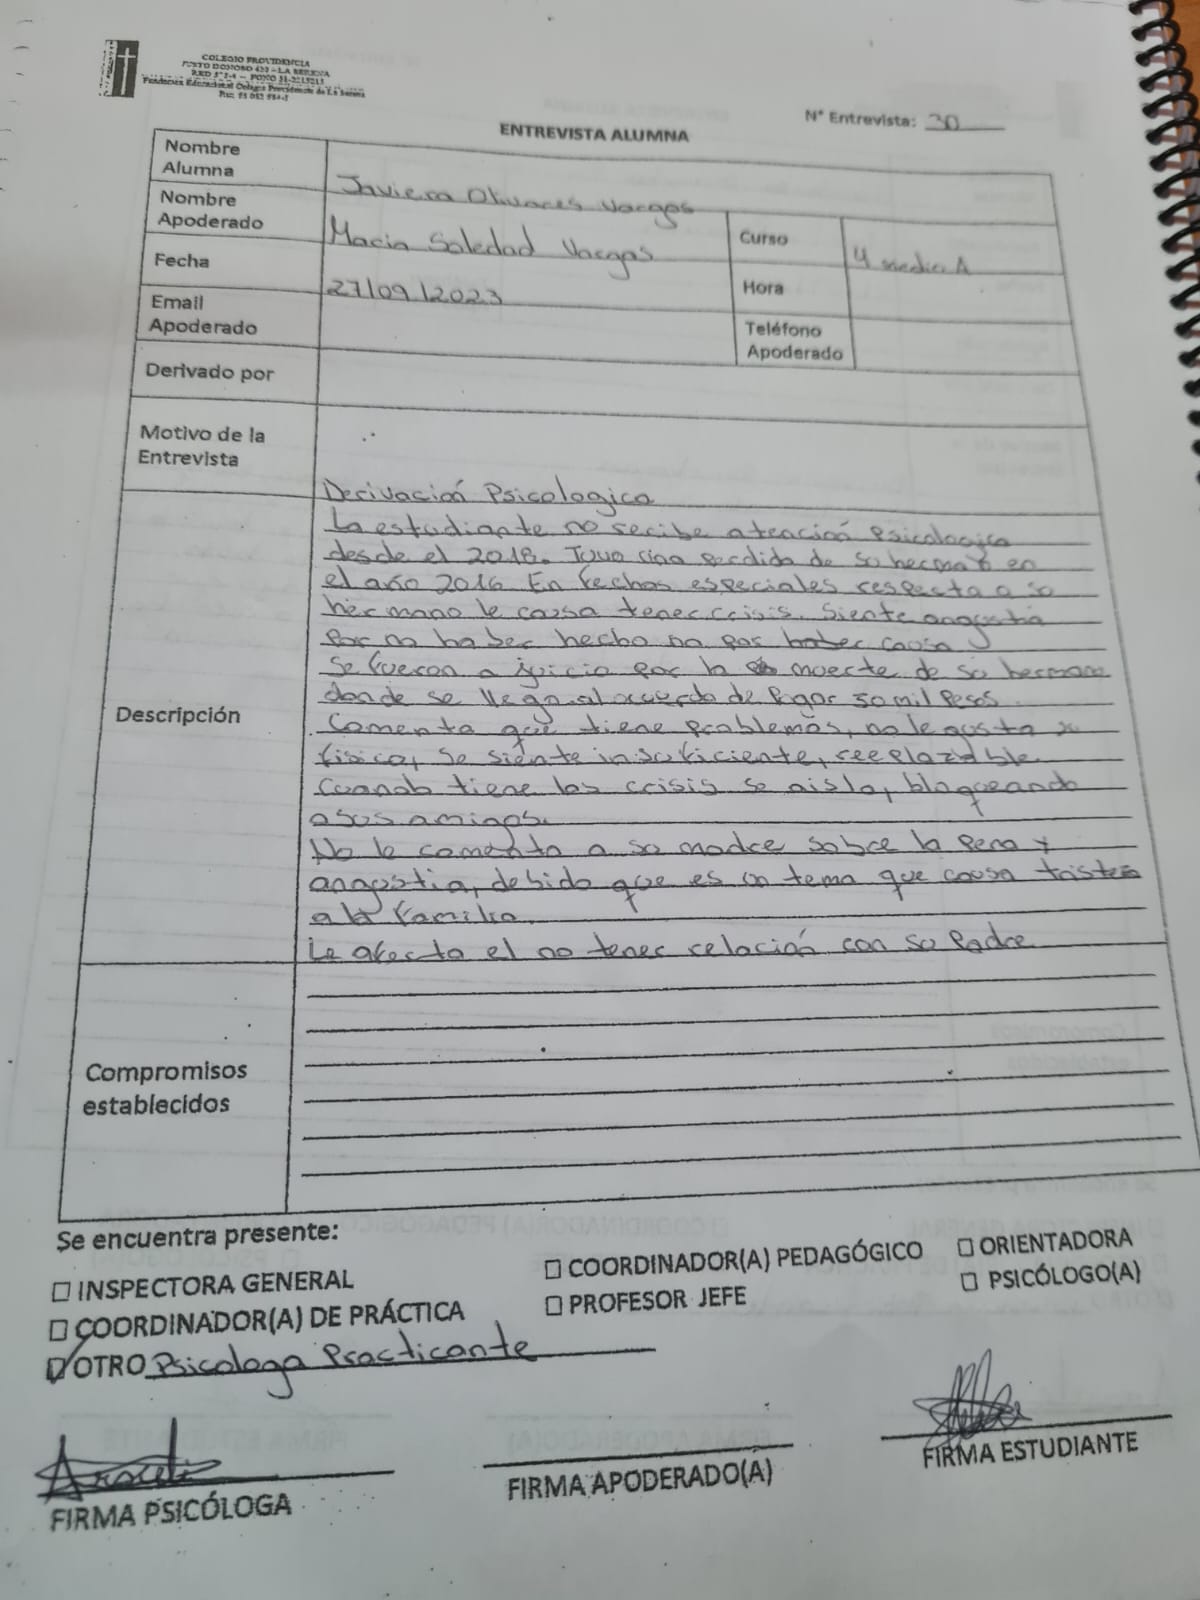 COLEGIO PROVIDENCIA
JUSTO DONOSO 420 - LA SERENA
RED
Fundación Educacional Colegio Providencia de La Serena
N° Entrevista: 30
ENTREVISTA ALUMNA
Nombre Alumna
Javiera Olivares Vargas
Nombre Apoderado
Maria Soledad Vargas
Curso
4 medio A
Fecha
27/09/2023
Hora
Email Apoderado
Teléfono Apoderado
Derivado por
Motivo de la Entrevista
Derivación Psicologica
Descripción
La estudiante no recibe atención Psicologica
desde el 2018. Tuvo una perdida de su hermano en
el año 2016. En fechas especiales respecto a su
hermano le causa tener crisis. Siente angustia
por no haber hecho no por haber causa
Se fueron a juicio por la muerte de su hermano
donde se llego al acuerdo de pagar 30 mil pesos.
Comenta que tiene problemas, no le gusta su
fisico, se siente insuficiente, reeplazable.
Cuando tiene las crisis se aisla, bloqueando
a sus amigos.
No le comenta a su madre sobre la pena y
angustia, debido que es un tema que causa tristeza
a la familia.
Le afecta el no tener relación con su Padre
Compromisos establecidos
Se encuentra presente:
☐ INSPECTORA GENERAL
☐ COORDINADOR(A) PEDAGÓGICO
☐ ORIENTADORA
☐ COORDINADOR(A) DE PRÁCTICA
☐ PROFESOR JEFE
☐ PSICÓLOGO(A)
☑ OTRO Psicologa Practicante
FIRMA PSICÓLOGA
FIRMA APODERADO(A)
FIRMA ESTUDIANTE